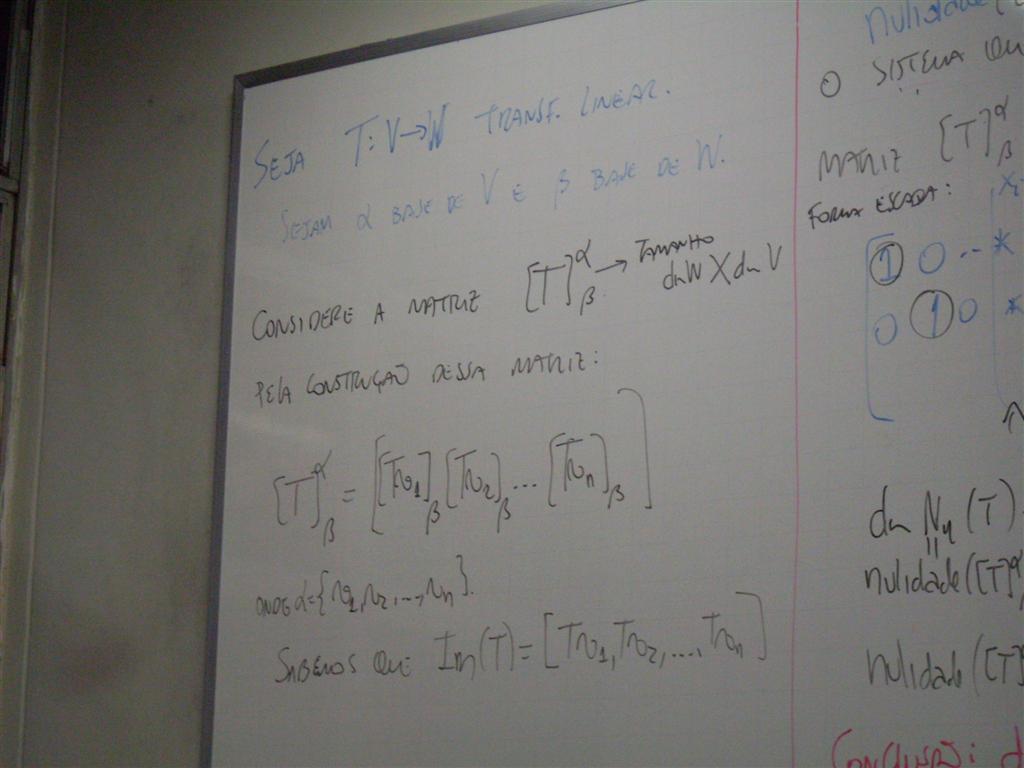 SEJA T: V→W TRANSF. LINEAR.
SEJAM α BASE DE V E β BASE DE W.
CONSIDERE A MATRIZ [T]^α_β → TAMANHO
dim W X dim V
PELA CONSTRUÇÃO DESSA MATRIZ:
[T]^α_β = [[Tv1]_β [Tv2]_β ... [Tvn]_β]
ONDE α={v1, v2, ..., vn}.
SABEMOS QUE Im(T) = [Tv1, Tv2, ..., Tvn]
nulidade(
O SISTEMA
MATRIZ [T]^α_β
FORMA ESCADA:
1 0 ... *
0 1 0 *
dim Nu(T)
=
nulidade([T]
nulidade([T]
CONCLUSÃO: d